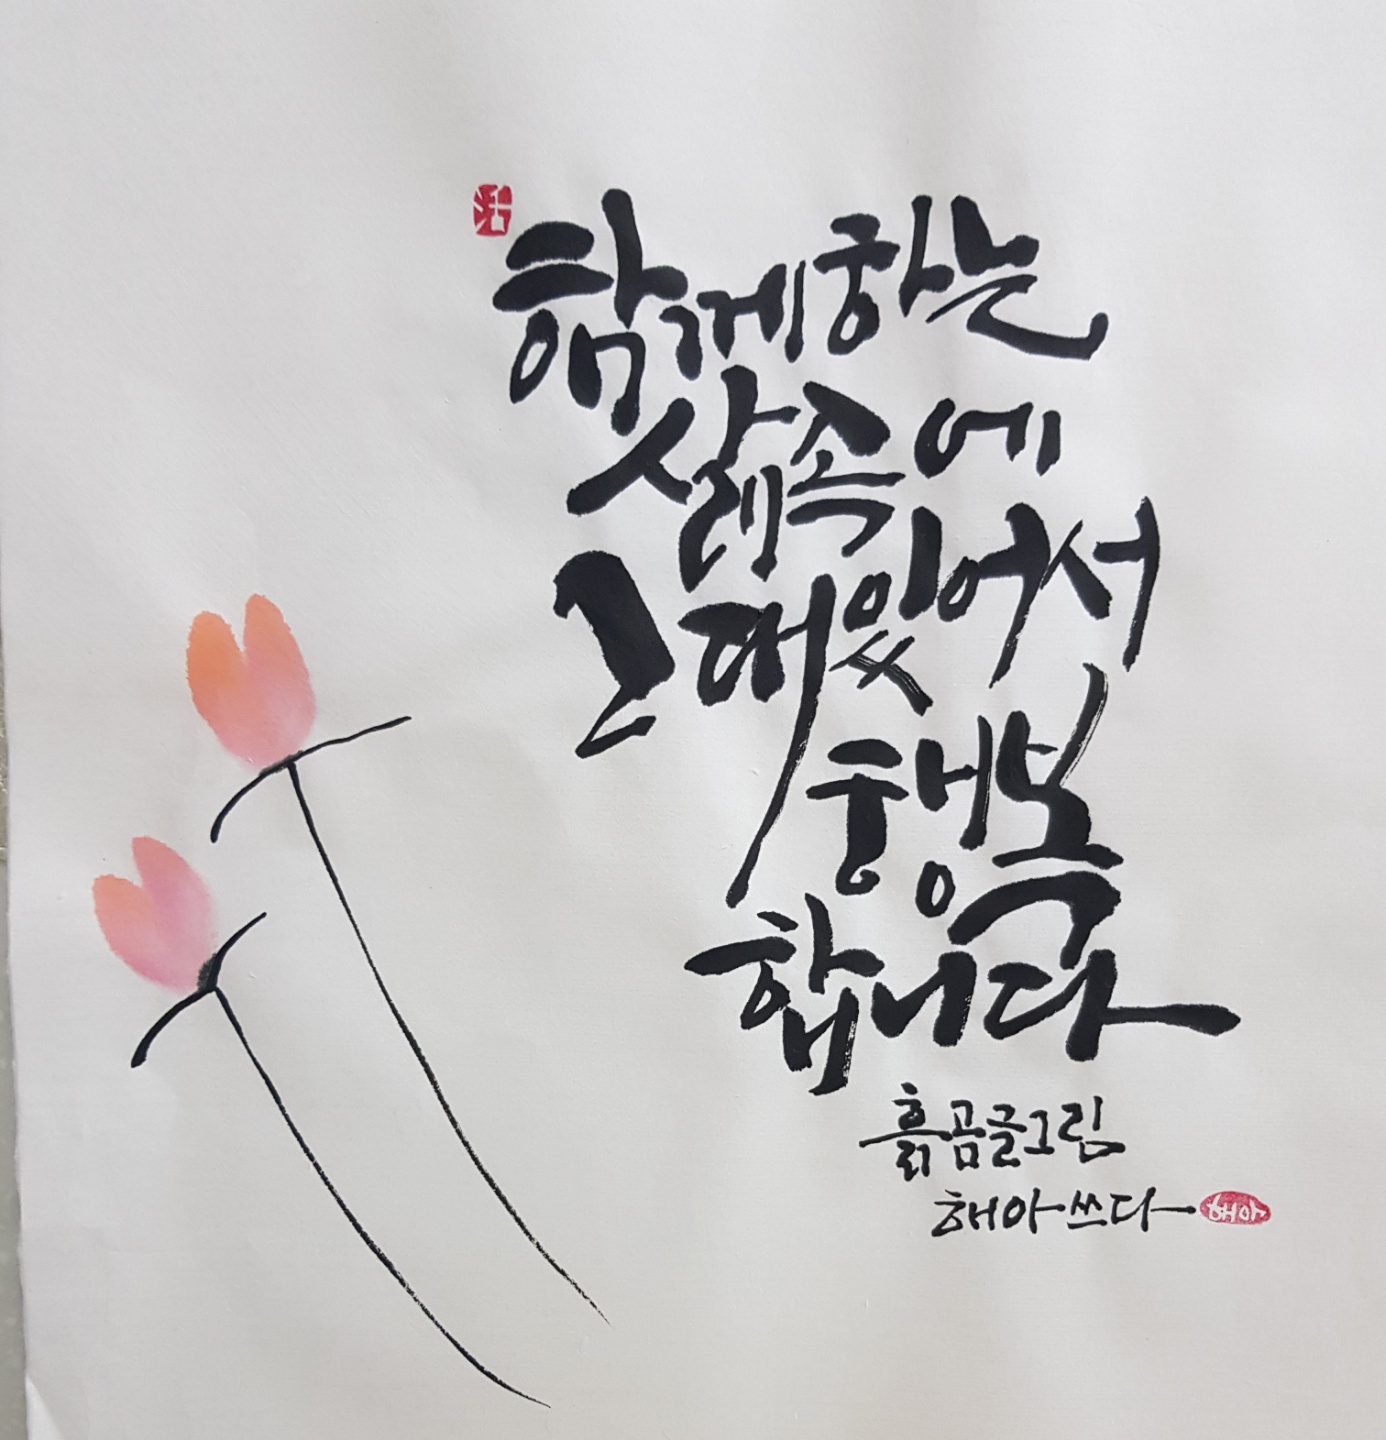 함께하는
삶속에
그대 있어서
행복
합니다
흙곰글그림
해아쓰다
해아